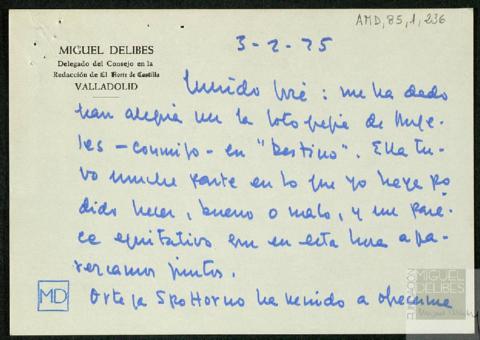 AMD,85,1,236
MIGUEL DELIBES
Delegado del Consejo en la
Redacción de El Norte de Castilla
VALLADOLID
3-2-75
Querido José: me ha dado
gran alegría ver la fotografía de Ange-
les -conmigo- en "Destino". Ella tu-
vo mucha parte en lo que yo haya po
dido hacer, bueno o malo, y me pare-
ce equitativo que en esta hora apa-
rezcamos juntos.
MD
Ortega Spottorno ha venido a ofrecerme
MIGUEL
DELIBES